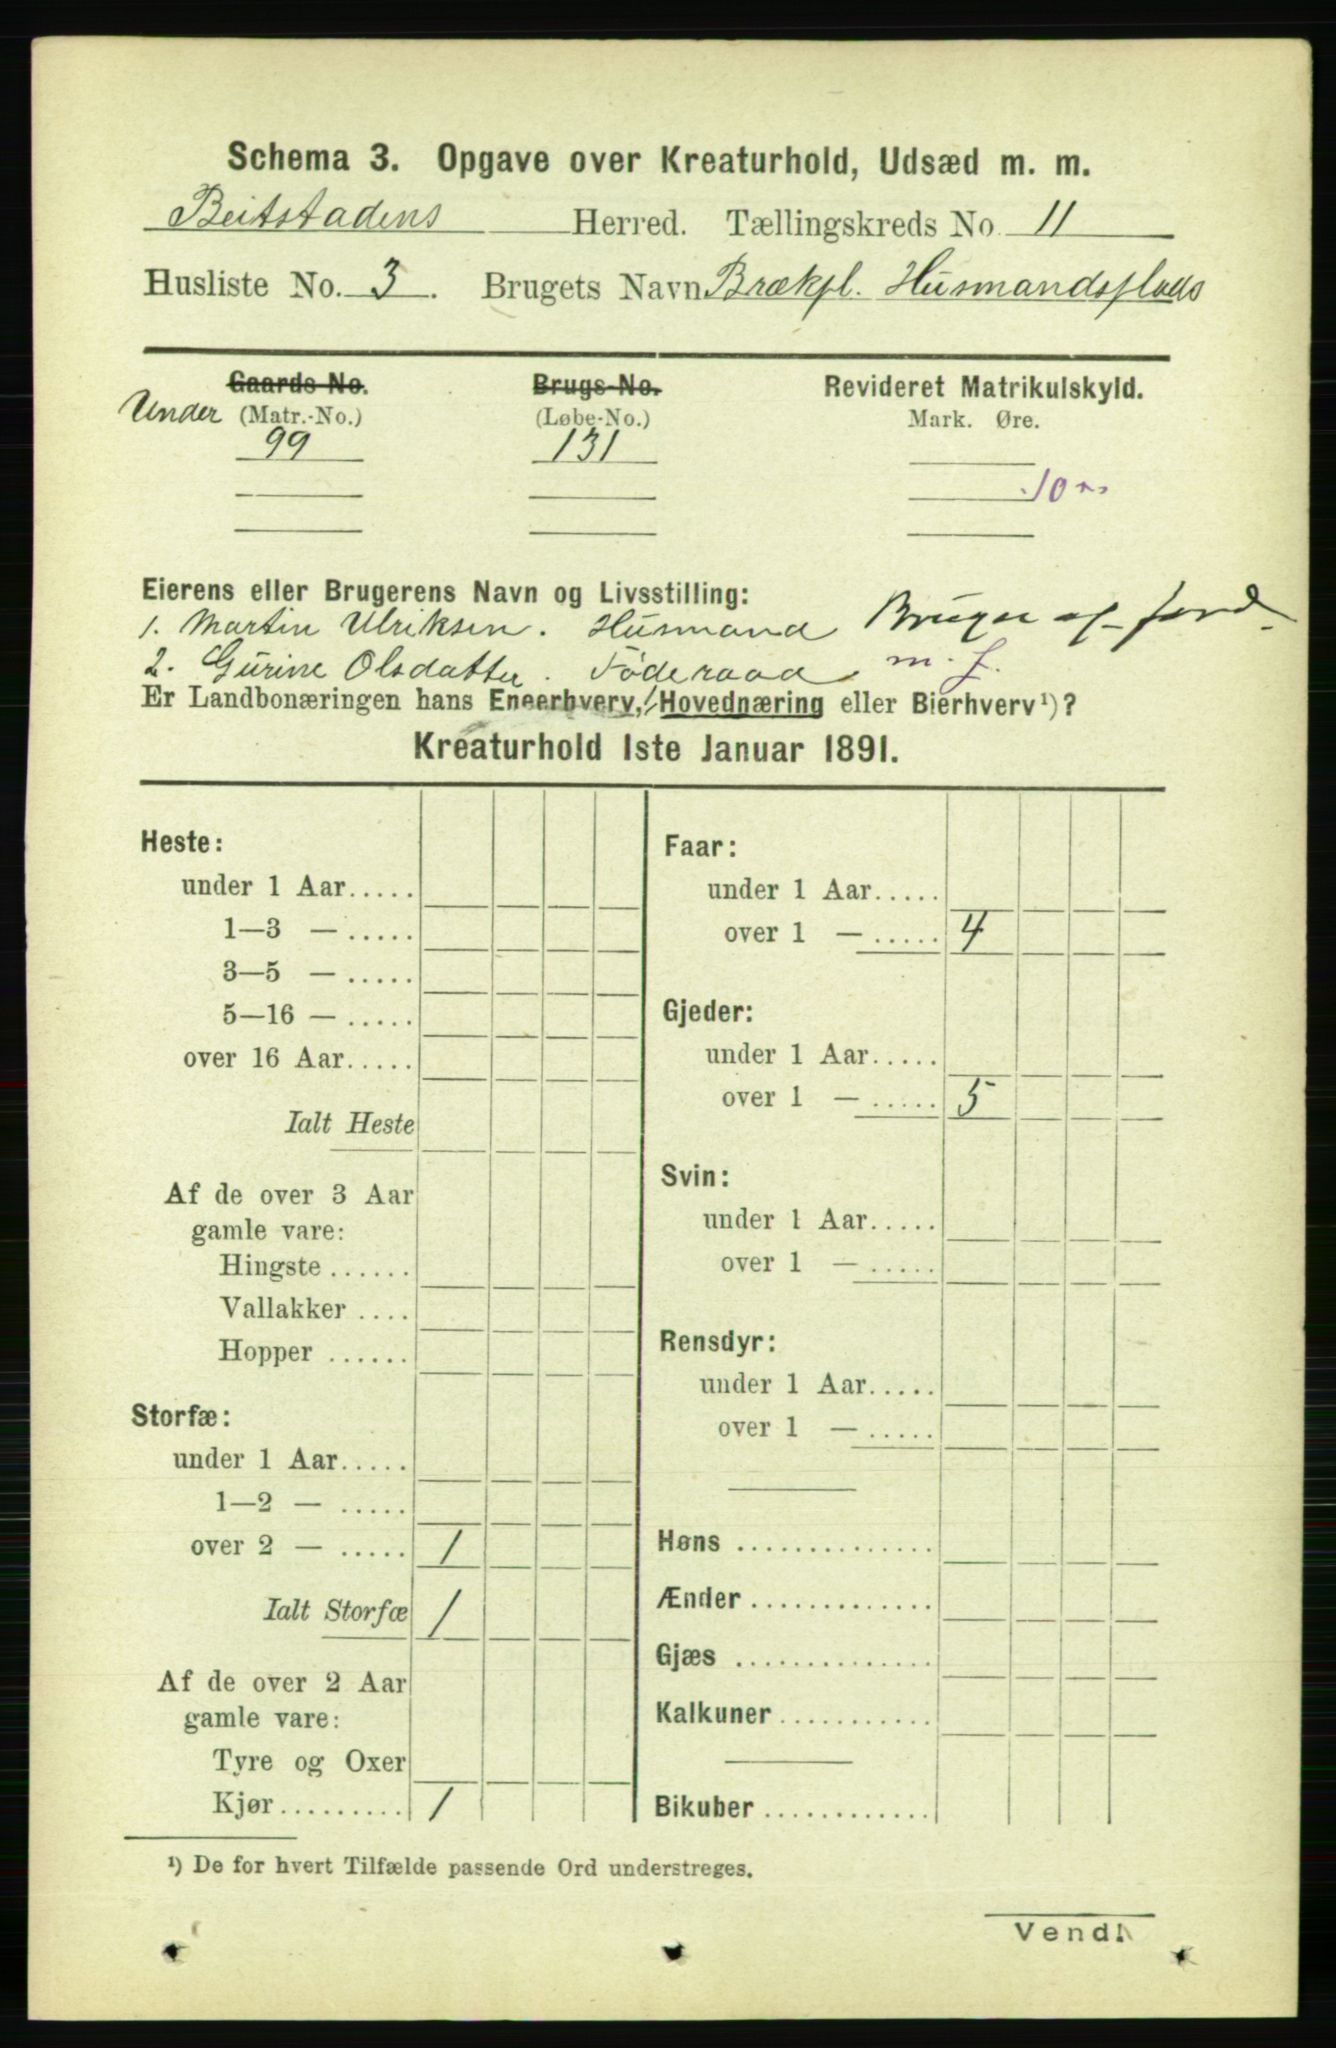 Schema 3. Opgave over Kreaturhold, Udsæd m. m.
Beitstadens Herred. Tællingskreds No. 11
Husliste No. 3. Brugets Navn Brækpl. Husmandsplads
Gaards-No. Brugs-No. Revideret Matrikulskyld.
Under (Matr.-No.) (Løbe-No.) Mark. Øre.
99 131
10
Eierens eller Brugerens Navn og Livsstilling:
1. Martin Ulriksen. Husmand Bruger af jord
2. Gurine Olsdatter. Föderaad m. f.
Er Landbonæringen hans Eneerhverv, Hovednæring eller Bierhverv¹)?
Kreaturhold 1ste Januar 1891.
Heste:
under 1 Aar.....
1—3 — .....
3—5 — .....
5—16 — .....
over 16 Aar.....
Ialt Heste
Af de over 3 Aar
gamle vare:
Hingste ......
Vallakker ....
Hopper ......
Storfæ:
under 1 Aar.....
1—2 — .....
over 2 — ..... 1
Ialt Storfæ 1
Af de over 2 Aar
gamle vare:
Tyre og Oxer
Kjør......... 1
Faar:
under 1 Aar.....
over 1 — ..... 4
Gjeder:
under 1 Aar.....
over 1 — ..... 5
Svin:
under 1 Aar.....
over 1 — .....
Rensdyr:
under 1 Aar.....
over 1 — .....
Høns ..............
Ænder .............
Gjæs ..............
Kalkuner...........
Bikuber ............
¹) De for hvert Tilfælde passende Ord understreges.
Vend!